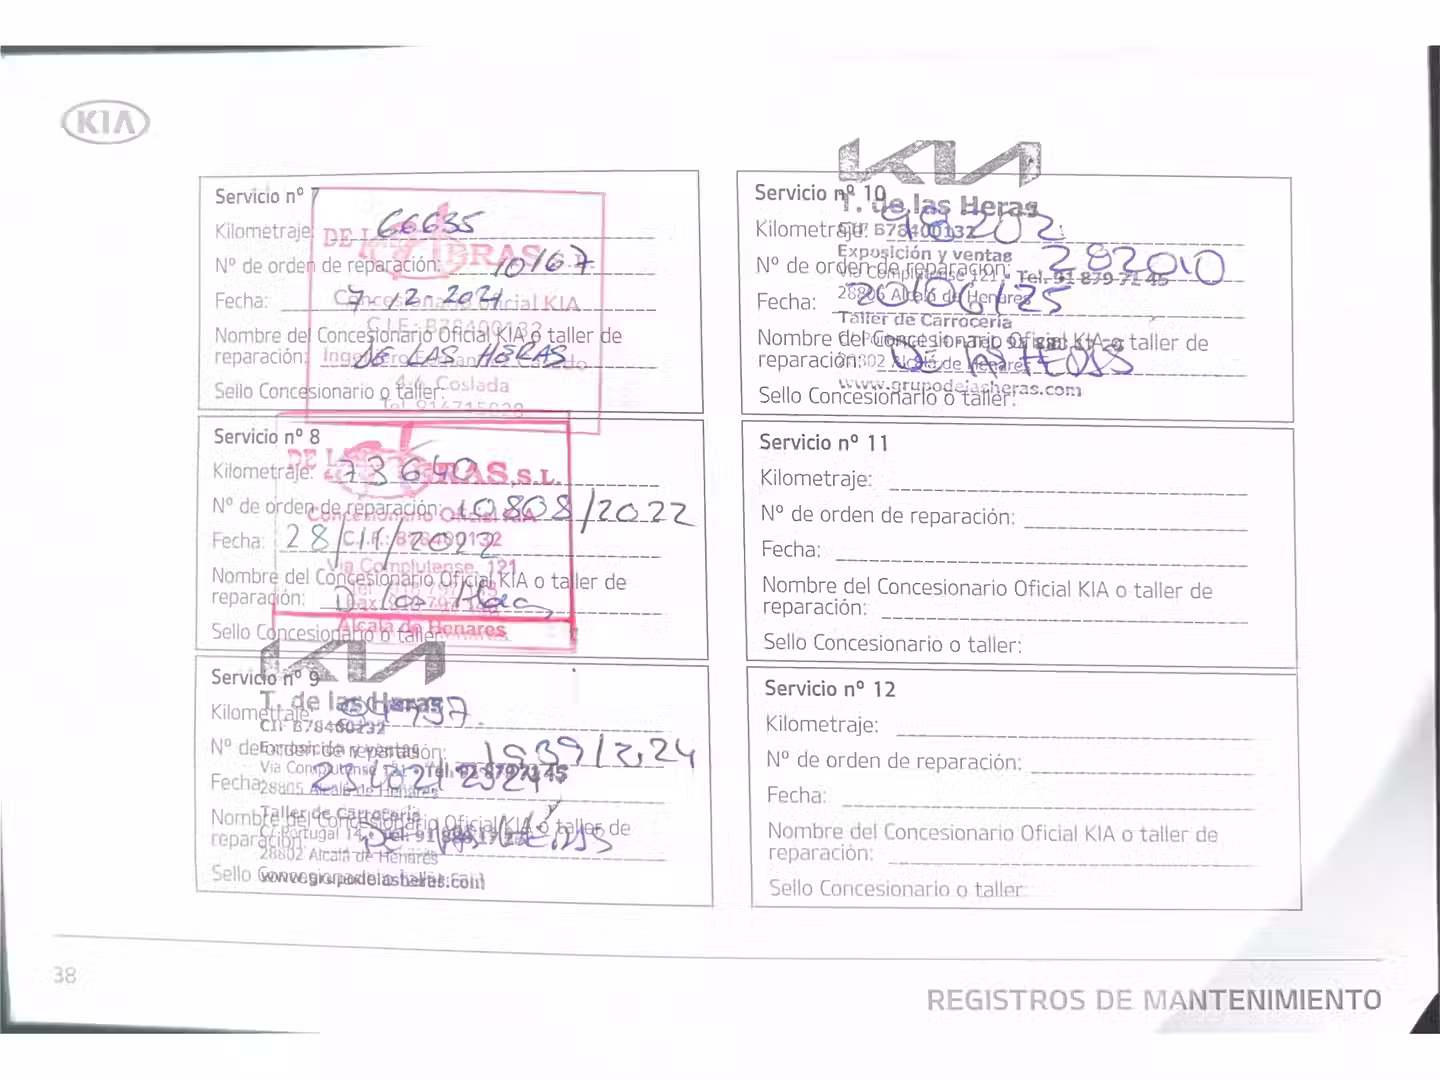 KIA
Servicio nº 7
Kilometraje: 66635
Nº de orden de reparación: 10167
Fecha: 7-12-2021
Nombre del Concesionario Oficial KIA o taller de
reparación: DE LAS HERAS
Sello Concesionario o taller:
Concesionario Oficial KIA
C.I.F.: B78400132
Coslada
Servicio nº 8
Kilometraje: 73640
Nº de orden de reparación: 10808/2022
Fecha: 28/11/2022
Nombre del Concesionario Oficial KIA o taller de
reparación: De las Heras
Sello Concesionario o taller:
S.L.
Concesionario Oficial KIA
C.I.F.: B78400132
Via Complutense, 121
Alcalá de Henares
Servicio nº 9
Kilometraje:
Nº de orden de reparación:
Fecha:
Nombre del Concesionario Oficial KIA o taller de
reparación: DE LAS HERAS
Sello Concesionario o taller:
KIA
T. de las Heras
Exposición y ventas
28805 Alcalá de Henares
Taller de Carrocería
C/ Portugal
28802 Alcalá de Henares
www.grupodelasheras.com
Servicio nº 10
Kilometraje: 98202
Nº de orden de reparación: 282010
Fecha: 20/06/25
Nombre del Concesionario Oficial KIA o taller de
reparación: DE LAS HERAS
Sello Concesionario o taller:
KIA
T. de las Heras
CIF B78400132
Exposición y ventas
Via Complutense 121 - Tel. 91 879 71 45
28805 Alcalá de Henares
Taller de Carrocería
28802 Alcalá de Henares
www.grupodelasheras.com
Servicio nº 11
Kilometraje:
Nº de orden de reparación:
Fecha:
Nombre del Concesionario Oficial KIA o taller de
reparación:
Sello Concesionario o taller:
Servicio nº 12
Kilometraje:
Nº de orden de reparación:
Fecha:
Nombre del Concesionario Oficial KIA o taller de
reparación:
Sello Concesionario o taller:
38
REGISTROS DE MANTENIMIENTO